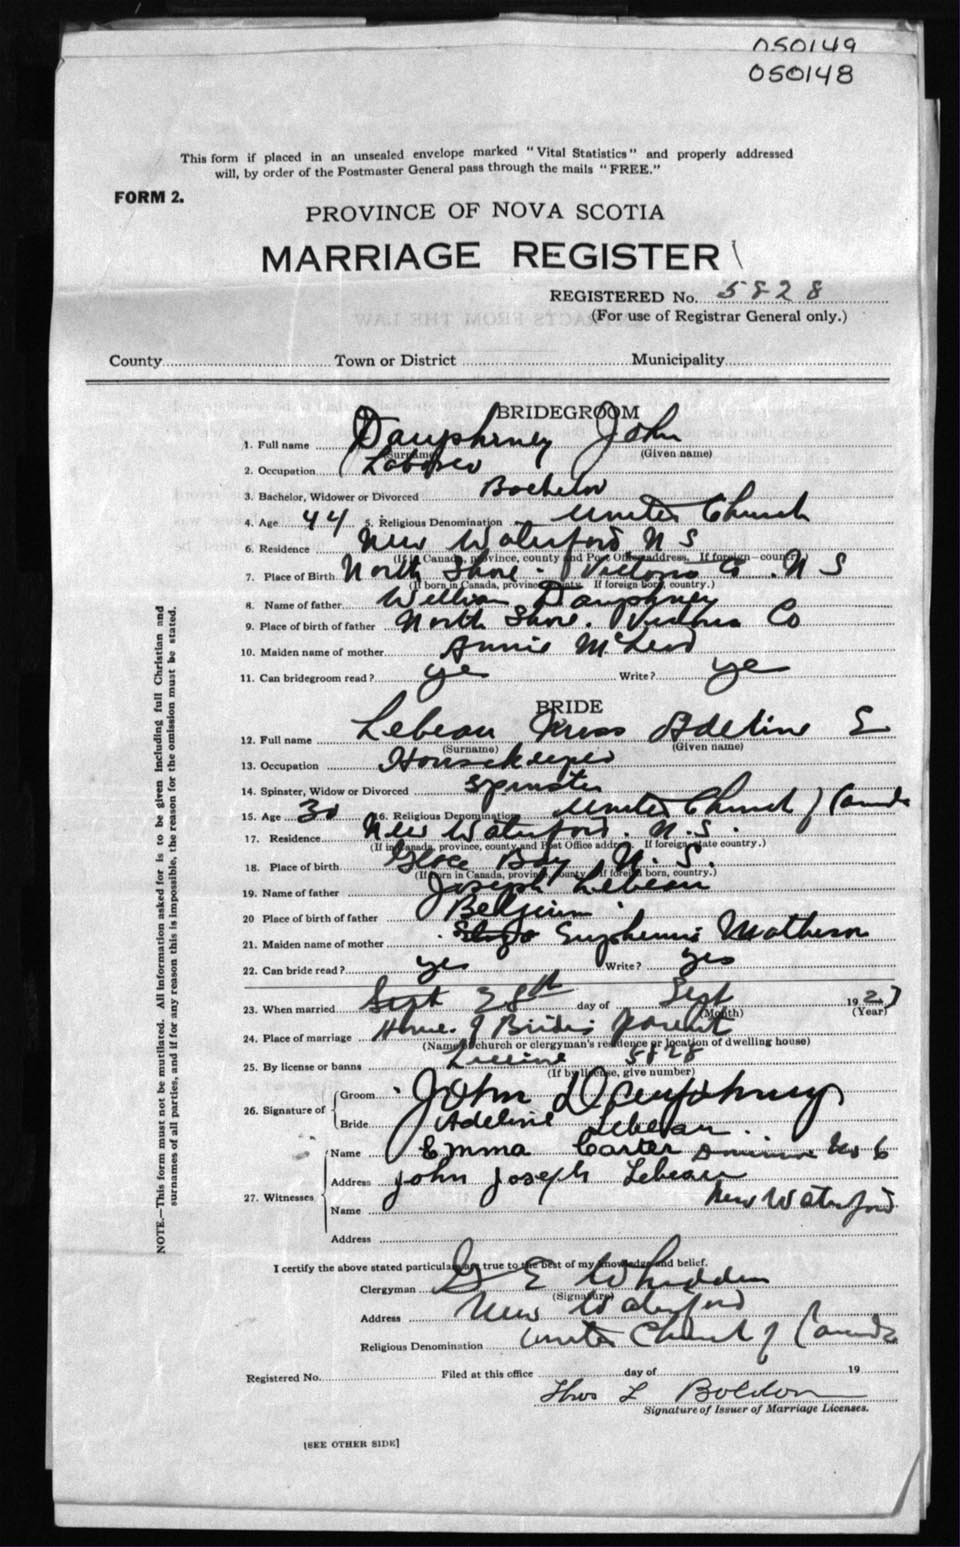 050149
050148
This form if placed in an unsealed envelope marked "Vital Statistics" and properly addressed
will, by order of the Postmaster General pass through the mails "FREE."
FORM 2.
PROVINCE OF NOVA SCOTIA
MARRIAGE REGISTER
REGISTERED No. 5828
(For use of Registrar General only.)
County Town or District Municipality
BRIDEGROOM
1. Full name Dauphney John
(Surname) (Given name)
2. Occupation Laborer
3. Bachelor, Widower or Divorced Bachelor
4. Age 44 5. Religious Denomination United Church
6. Residence New Waterford N S
(If in Canada, province, county and Post Office address. If foreign country.)
7. Place of Birth North Shore. Victoria Co. N S
(If born in Canada, province, county. If foreign born, country.)
8. Name of father William Dauphney
9. Place of birth of father North Shore. Victoria Co
10. Maiden name of mother Annie McLeod
11. Can bridegroom read? yes Write? yes
BRIDE
12. Full name Lebeau Miss Adeline E
(Surname) (Given name)
13. Occupation Housekeeper
14. Spinster, Widow or Divorced Spinster
15. Age 30 16. Religious Denomination United Church of Canada
17. Residence New Waterford. N.S.
(If in Canada, province, county and Post Office address. If foreign state country.)
18. Place of birth Glace Bay N.S.
(If born in Canada, province, county. If foreign born, country.)
19. Name of father Joseph Lebeau
20 Place of birth of father Belgium.
21. Maiden name of mother Euphemia Matheson
22. Can bride read? yes Write? yes
23. When married Sept 28th day of Sept 1927
(Month) (Year)
24. Place of marriage Home of Brides parent
(Name of church or clergyman's residence or location of dwelling house)
25. By license or banns License 5828
(If by license, give number)
26. Signature of Groom John Dauphney
Bride Adeline Lebeau.
27. Witnesses Name Emma Carter Dominion No 6
Address John Joseph Lebeau
Name New Waterford
Address
I certify the above stated particulars are true to the best of my knowledge and belief.
Clergyman G E Whidden
(Signature)
Address New Waterford
Religious Denomination United Church of Canada
Registered No. Filed at this office day of 19
Thos L Boldon
Signature of Issuer of Marriage Licenses.
[SEE OTHER SIDE]
NOTE.—This form must not be mutilated. All information asked for is to be given including full Christian and
surnames of all parties, and if for any reason this is impossible, the reason for the omission must be stated.